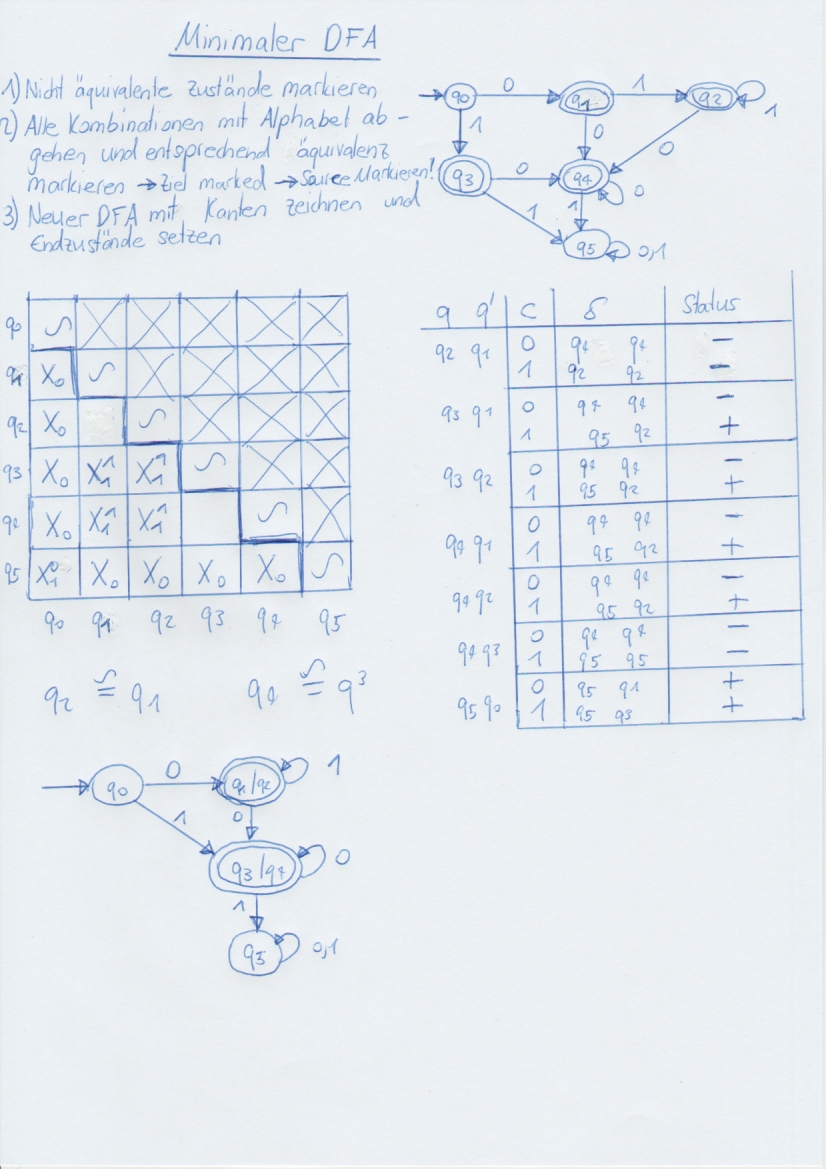 Minimaler DFA
1) Nicht äquivalente zustände markieren
2) Alle Kombinationen mit Alphabet ab-
gehen und entsprechend äquivalenz
markieren → Ziel marked → Source Markieren!
3) Neuer DFA mit Kanten zeichnen und
Endzustände setzen
q0 0 q1 1 q2 1
1 0 0
q3 0 q4 0
1 1
q5 0,1
q0 ∽ X X X X X
q1 X0 ∽ X X X X
q2 X0 ∽ X X X
q3 X0 X1^1 X1^1 ∽ X X
q4 X0 X1^1 X1^1 ∽ X
q5 X1^0 X0 X0 X0 X0 ∽
q0 q1 q2 q3 q4 q5
q q' C δ Status
q2 q1 0 q4 q4 −
1 q2 q2 −
q3 q1 0 q4 q4 −
1 q5 q2 +
q3 q2 0 q4 q4 −
1 q5 q2 +
q4 q1 0 q4 q4 −
1 q5 q2 +
q4 q2 0 q4 q4 −
1 q5 q2 +
q4 q3 0 q4 q4 −
1 q5 q5 −
q5 q0 0 q5 q1 +
1 q5 q3 +
q2 ≌ q1 q4 ≌ q3
q0 0 q1/q2 1
1 0
q3/q4 0
1
q5 0,1